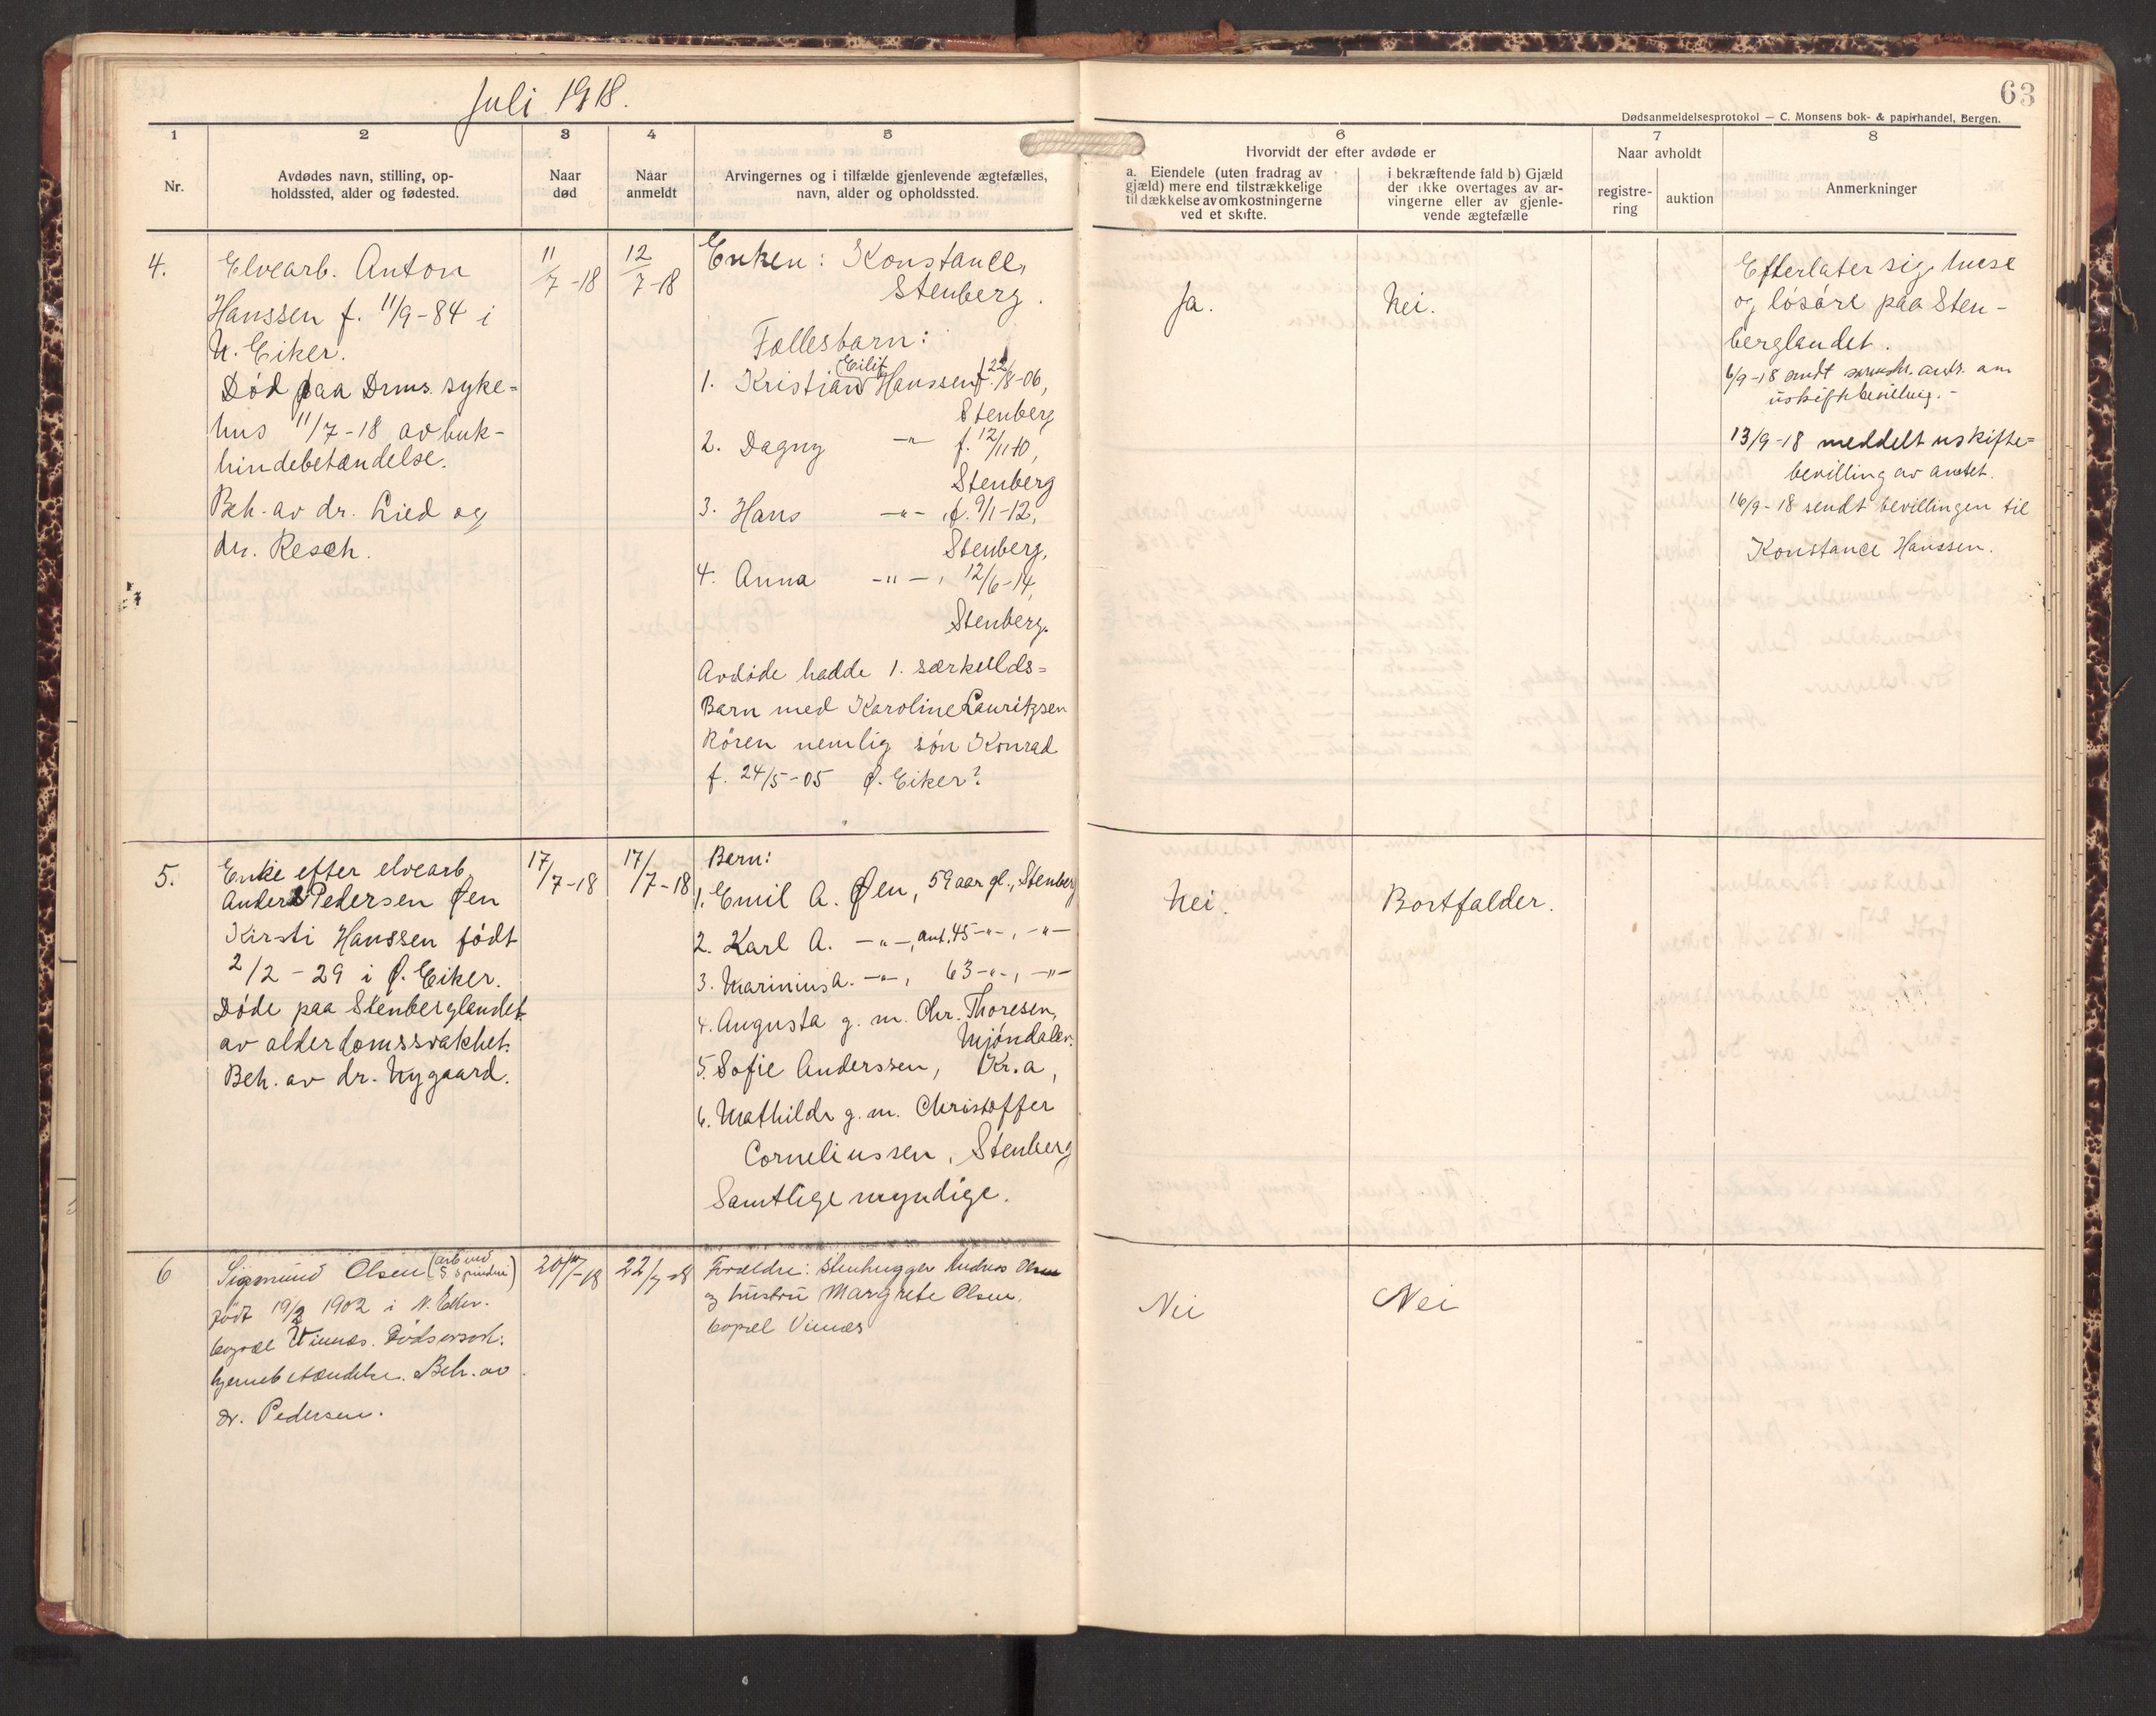 Juli 1918.
63
Dødsanmeldelsesprotokol — C. Monsens bok- & papirhandel, Bergen.
1
2
3
4
5
6
7
8
Nr.
Avdødes navn, stilling, op-
holdssted, alder og fødested.
Naar
død
Naar
anmeldt
Arvingernes og i tilfælde gjenlevende ægtefælles,
navn, alder og opholdssted.
Hvorvidt der efter avdøde er
a. Eiendele (uten fradrag av
gjæld) mere end tilstrækkelige
til dækkelse av omkostningerne
ved et skifte.
i bekræftende fald b) Gjæld
der ikke overtages av ar-
vingerne eller av gjenle-
vende ægtefælle
Naar avholdt
registre-
ring
auktion
Anmerkninger
4.
Elvearb. Anton
Hanssen f. 11/9-84 i
N. Eiker.
Død paa Drms. syke=
hus 11/7-18 av buk-
hindebetændelse.
Beh. av dr. Lied og
dr. Resch.
11/7-18
12/7-18
Enken: Konstance,
Stenberg.
Fællesbarn:
Eilif
1. Kristian Hanssen f. 22/8-06,
Stenberg
2. Dagny -"- f. 12/11-10,
Stenberg
3. Hans -"- , f. 9/1-12,
Stenberg,
4. Anna -"-, 12/6-14,
Stenberg.
Avdøde hadde 1. særkulds=
Barn med Karoline Lauritzsen
Røren nemlig søn Konrad
f. 24/5-05 Ø. Eiker?
Ja.
Nei.
Efterlater sig huse
og løsøre paa Sten-
berglandet.
6/9-18 sendt andr. om
uskiftebevilling.-
13/9-18 meddelt uskifte=
bevilling av amtet.
16/9-18 sendt bevillingen til
Konstance Hanssen.
5.
Enke efter elvearb.
Anders Pedersen Øen
Kirsti Hanssen født
2/2-29 i Ø. Eiker.
Døde paa Stenberglandet
av alderdomssvakhet.
Beh. av dr. Nygaard.
17/7-18
17/7-18
Bern:
1. Emil A. Øen, 59 aar gl., Stenberg
2. Karl A. -"-, ant. 45 -"-, -"-
3. Marinius A. -"-, 63 -"-, -"-
4. Augusta g. m. Chr. Thoresen,
Mjøndalen.
5. Sofie Anderssen, Kr.a,
6. Mathilde g. m. Christoffer
Corneliussen, Stenberg
Samtlige myndige.
Nei.
Bortfalder.
6
Sigmund Olsen (arb. ved
spinderi)
født 19/2 1902 i N. Eiker.
bopæl Vinnæs. Dødsaarsak:
hjernebetændelse. Beh. av
dr. Pedersen.
20/7-18
22/7-18
Forældre: Stenhugger Andreas Olsen
og hustru Margrete Olsen,
bopæl Vinnæs
Nei
Nei